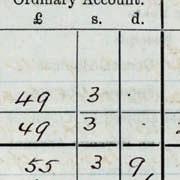 Ordinary Account.
£ s. d.
49 3 .
49 3 .
55 3 9